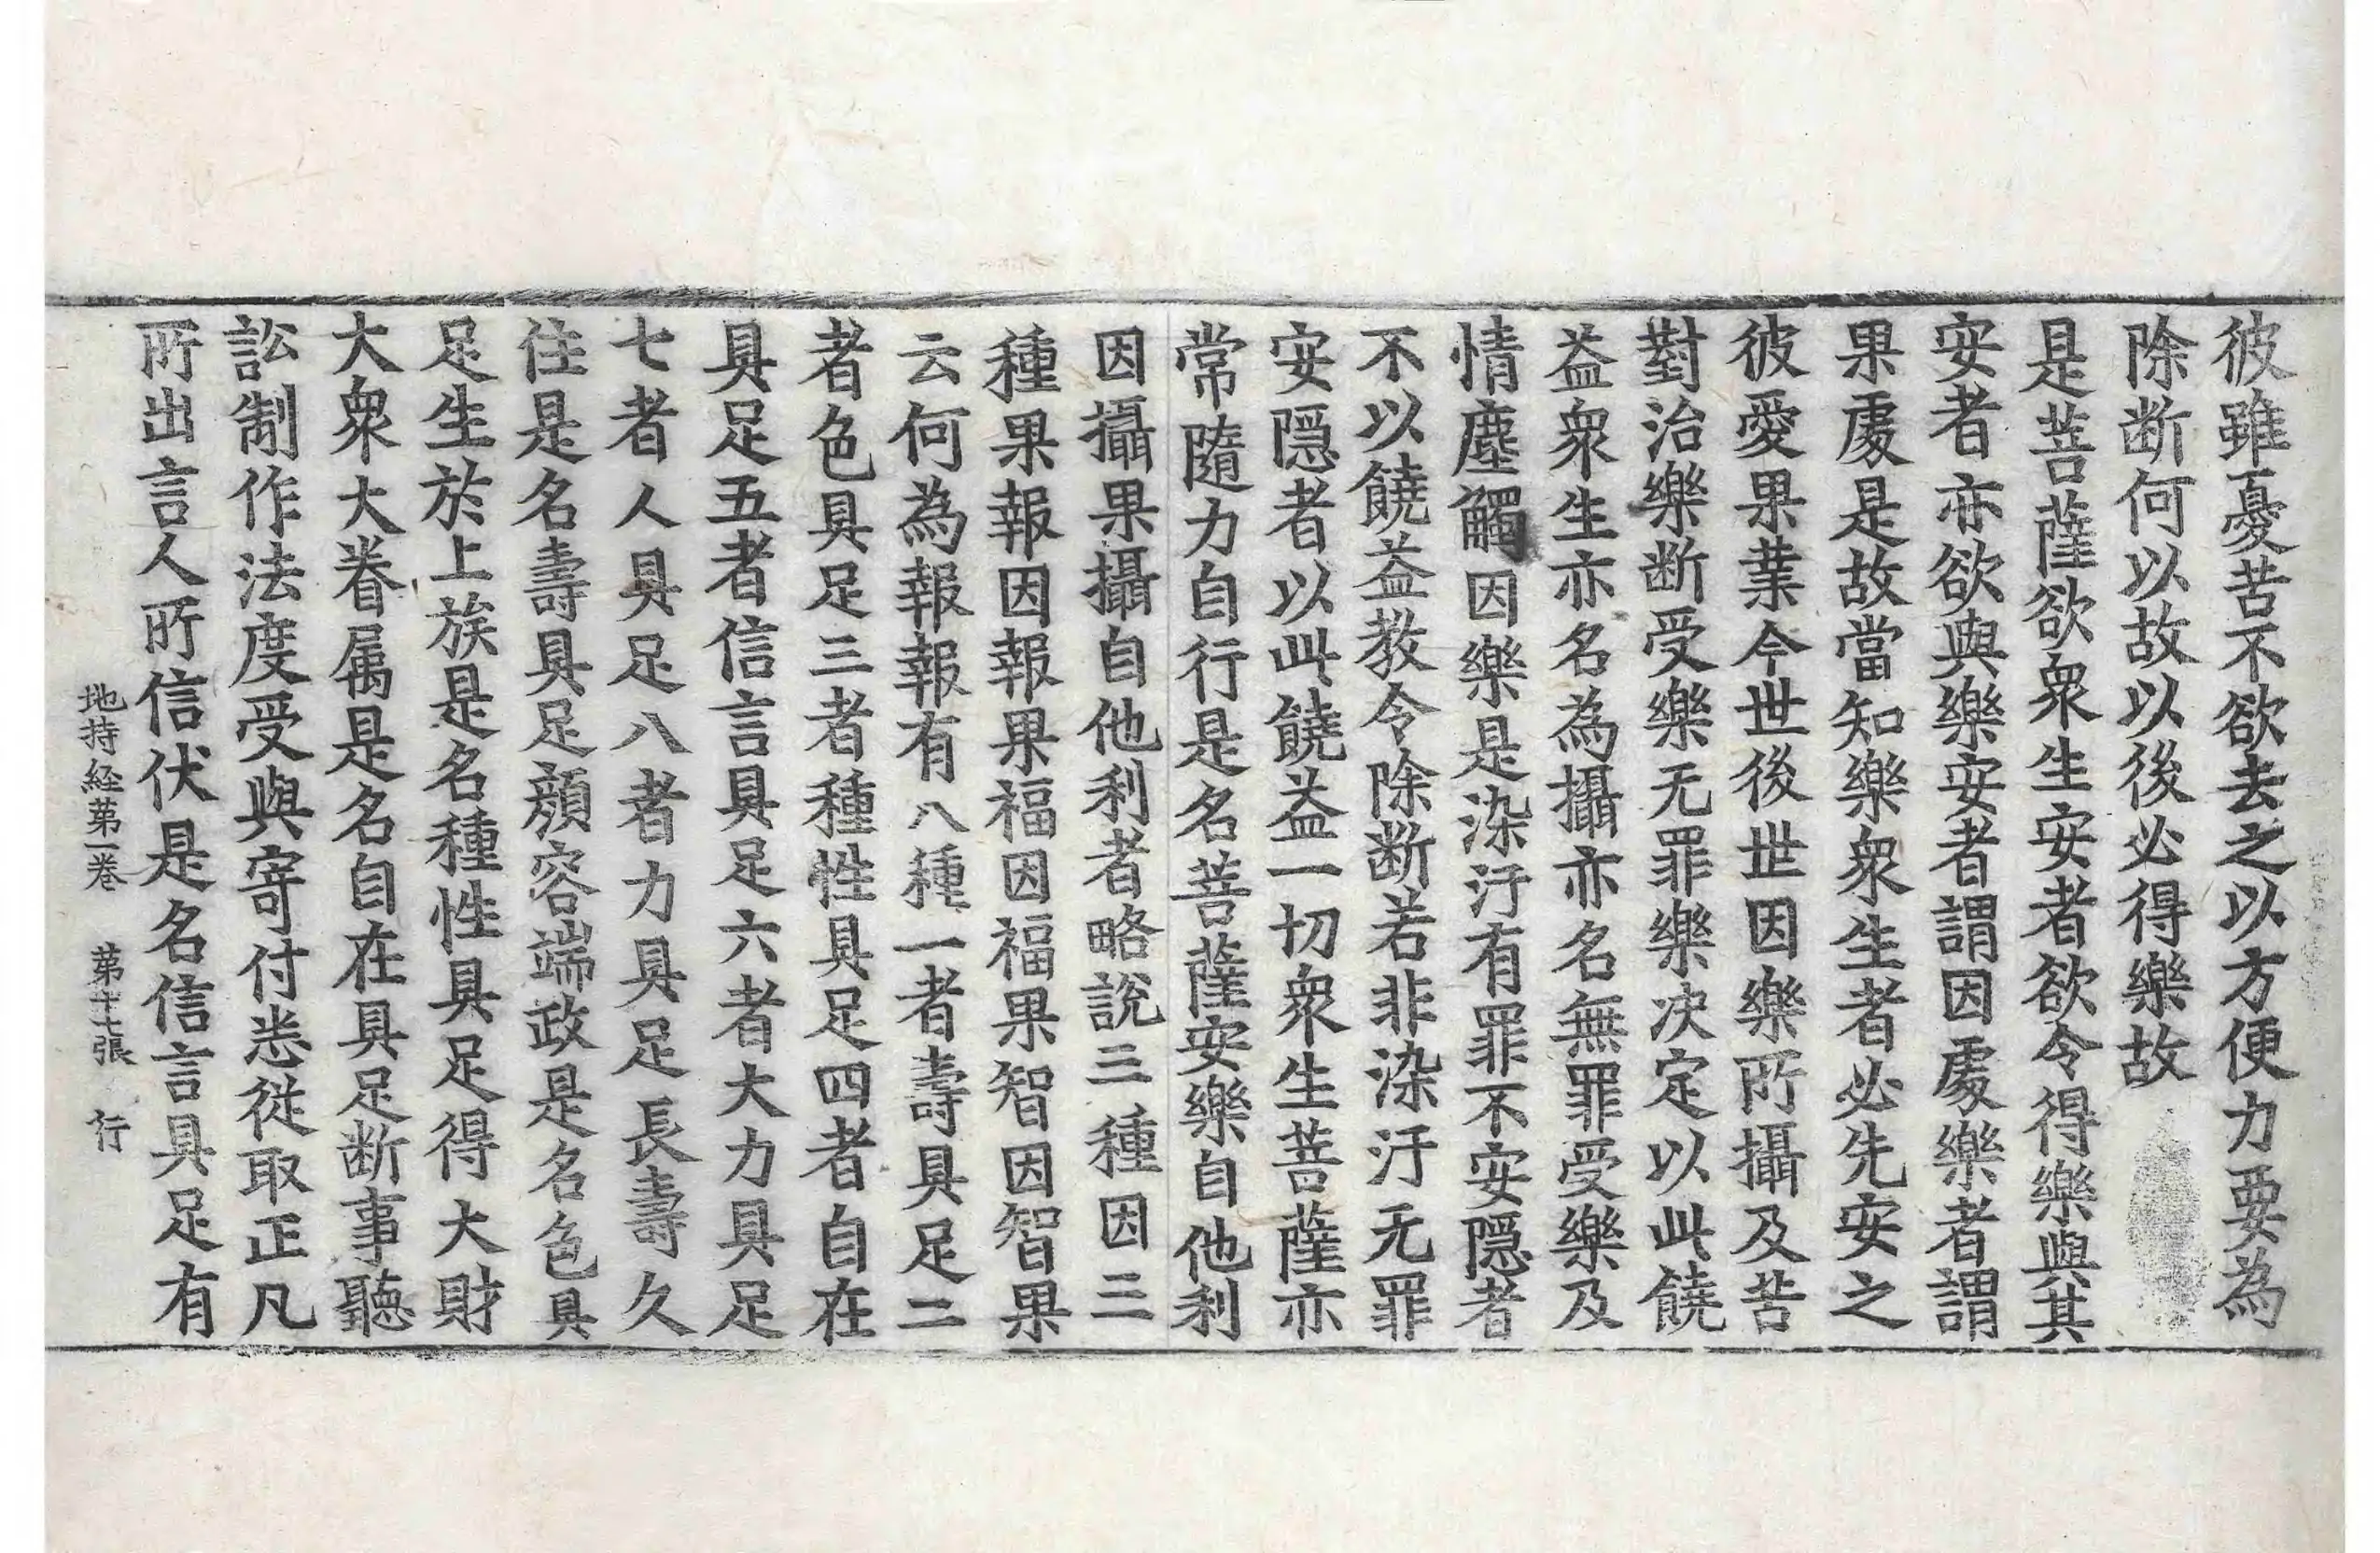 彼雖憂苦不欲去之以方便力要為
除断何以故以後必得樂故
是菩薩欲衆生安者欲令得樂與其
安者亦欲與樂安者謂因處樂者謂
果處是故當知樂衆生者必先安之
彼愛果業今世後世因樂所攝及苦
對治樂断受樂无罪樂决定以此饒
益衆生亦名為攝亦名無罪受樂及
情塵觸因樂是染汙有罪不安隠者
不以饒益教令除断若非染汙无罪
安隠者以此饒益一切衆生菩薩亦
常隨力自行是名菩薩安樂自他利
因攝果攝自他利者略說三種因三
種果報因報果福因福果智因智果
云何為報報有八種一者壽具足二
者色具足三者種性具足四者自在
具足五者信言具足六者大力具足
七者人具足八者力具足長壽久
住是名壽具足顔容端政是名色具
足生於上族是名種性具足得大財
大衆大眷属是名自在具足断事聽
訟制作法度受與寄付悉從取正凡
所出言人所信伏是名信言具足有
地持経苐一卷 苐十七張 行